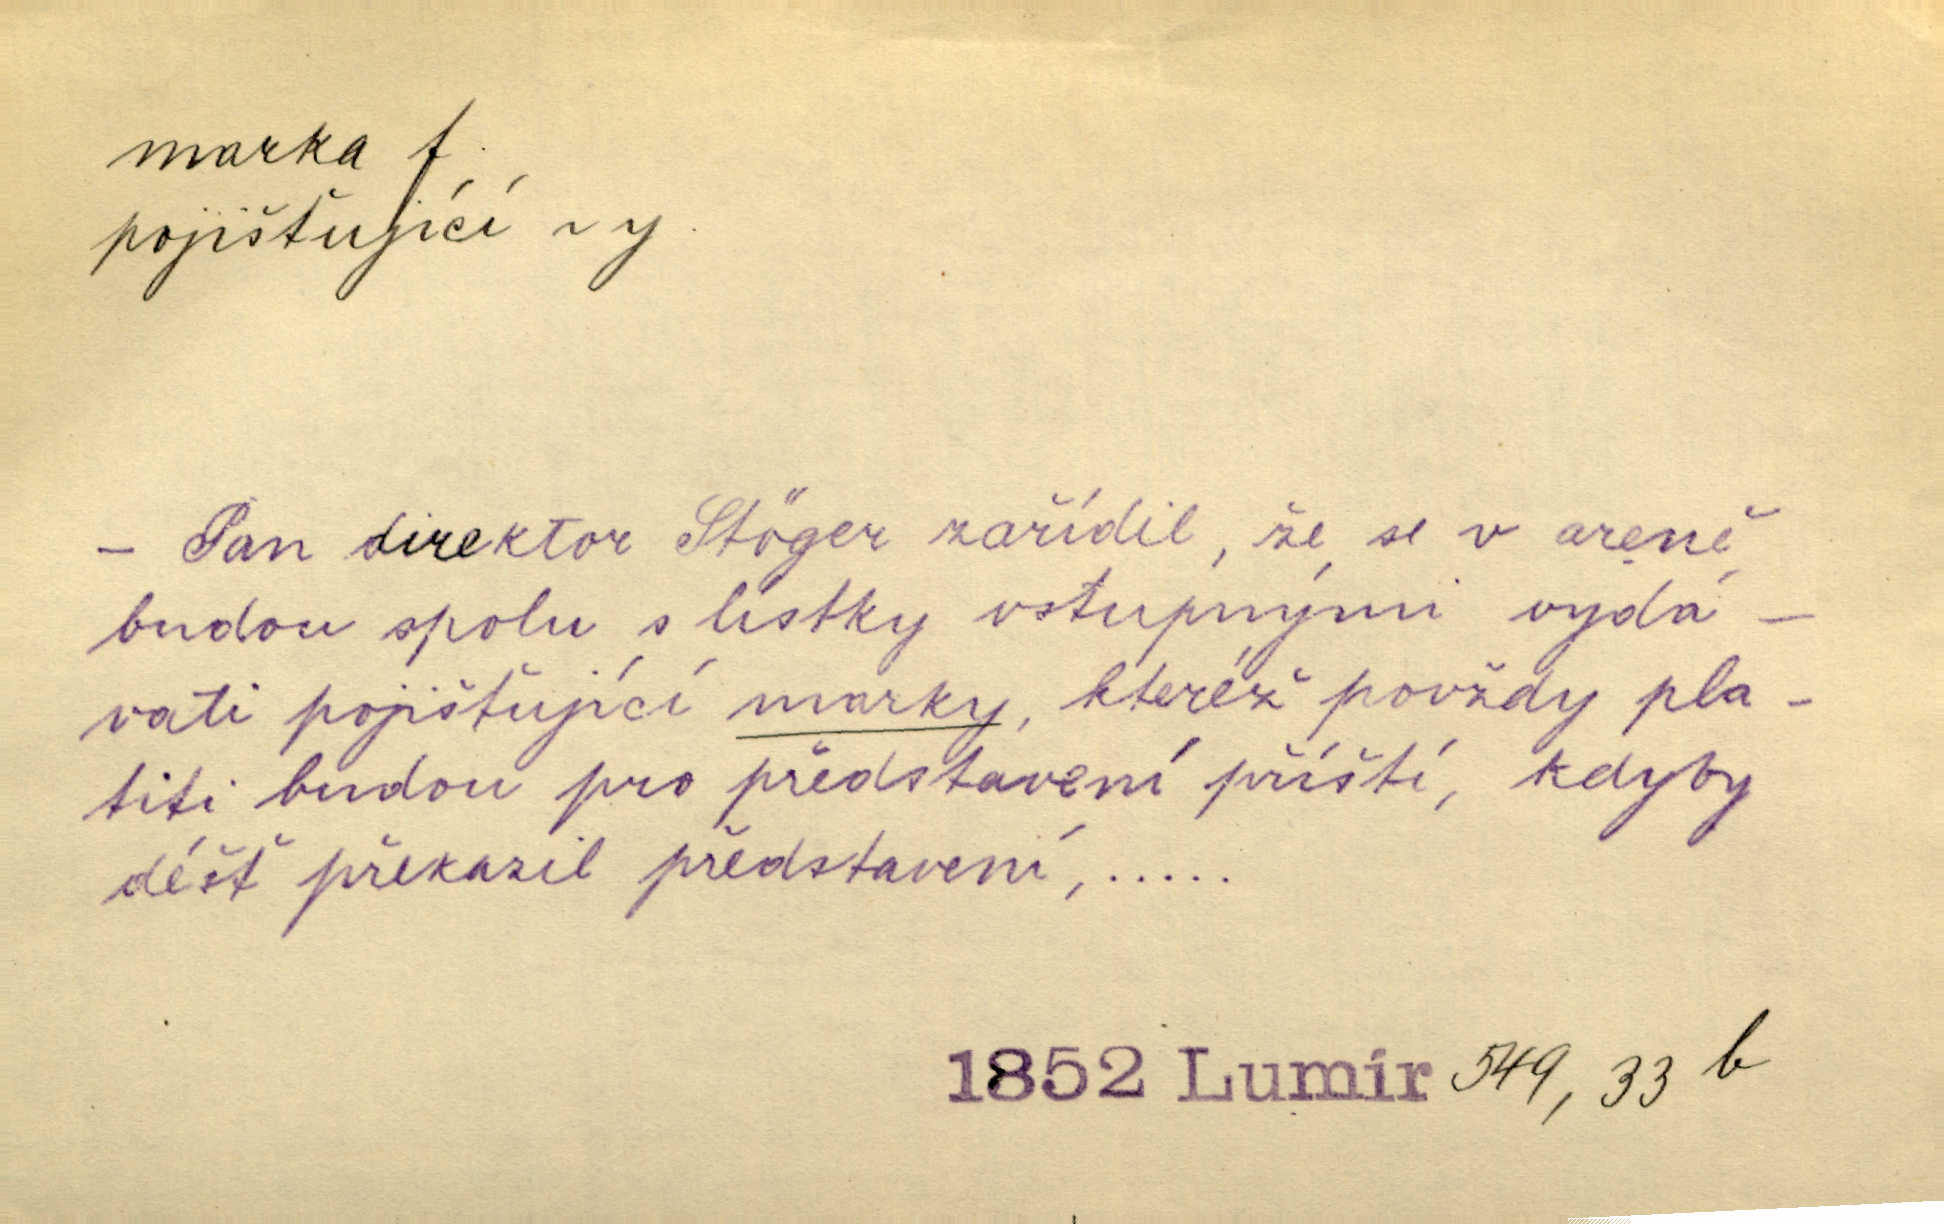 marka f.
pojišťující ~ y.
– Pan direktor Stöger zařídil, že se v areně
budou spolu s lístky vstupnými vydá –
vati pojišťující marky, kteréž povždy pla –
titi budou pro představení příští, kdyby
déšť překazil představení, .....
1852 Lumír 549, 33 b